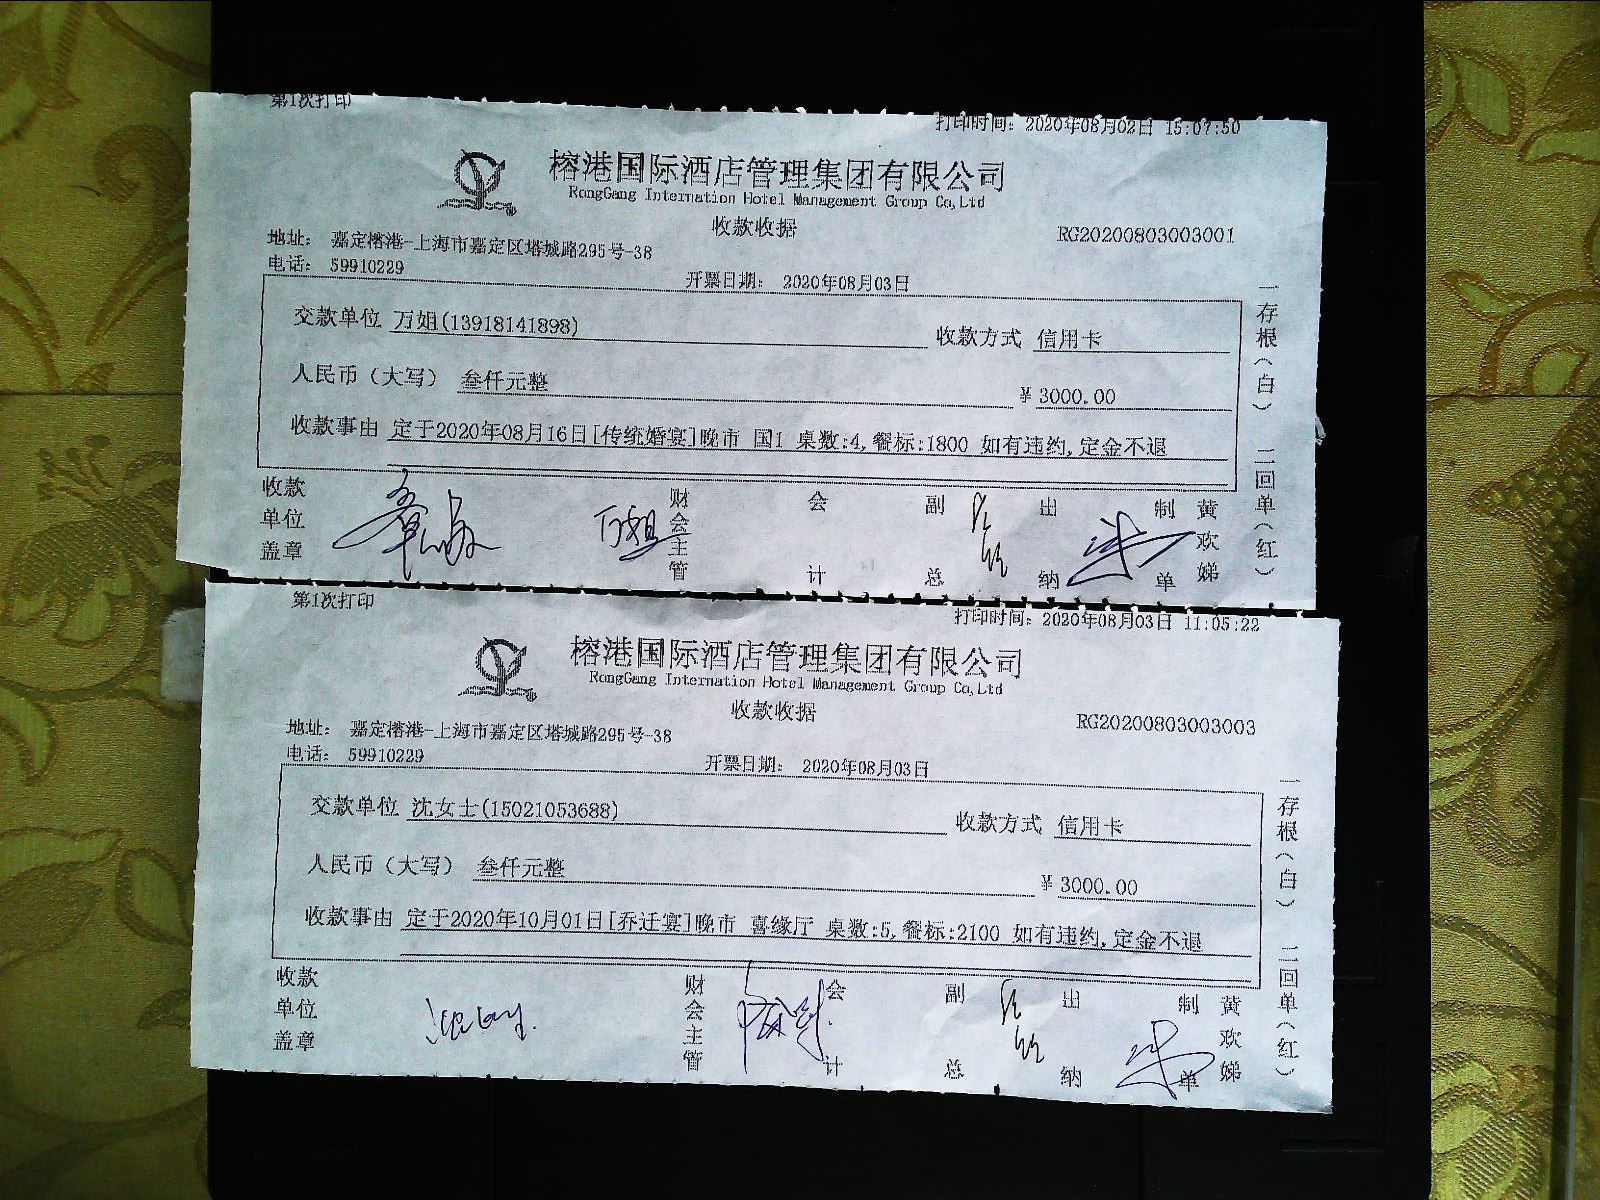 第1次打印
打印时间: 2020年08月02日 15:07:50
榕港国际酒店管理集团有限公司
RongGang Internation Hotel Management Group Co,Ltd
收款收据
RG20200803003001
地址: 嘉定榕港-上海市嘉定区塔城路295号-38
电话: 59910229
开票日期: 2020年08月03日
交款单位 万姐(13918141898) 收款方式 信用卡
人民币（大写） 叁仟元整 ¥ 3000.00
收款事由 定于2020年08月16日[传统婚宴]晚市 国1 桌数:4,餐标:1800 如有违约,定金不退
收款单位盖章 万姐 财会主管 会计 副总 出纳 制单 黄欢娣
一存根（白） 二回单（红）
第1次打印
打印时间: 2020年08月03日 11:05:22
榕港国际酒店管理集团有限公司
RongGang Internation Hotel Management Group Co,Ltd
收款收据
RG20200803003003
地址: 嘉定榕港-上海市嘉定区塔城路295号-38
电话: 59910229
开票日期: 2020年08月03日
交款单位 沈女士(15021053688) 收款方式 信用卡
人民币（大写） 叁仟元整 ¥ 3000.00
收款事由 定于2020年10月01日[乔迁宴]晚市 喜缘厅 桌数:5,餐标:2100 如有违约,定金不退
收款单位盖章 财会主管 会计 副总 出纳 制单 黄欢娣
一存根（白） 二回单（红）